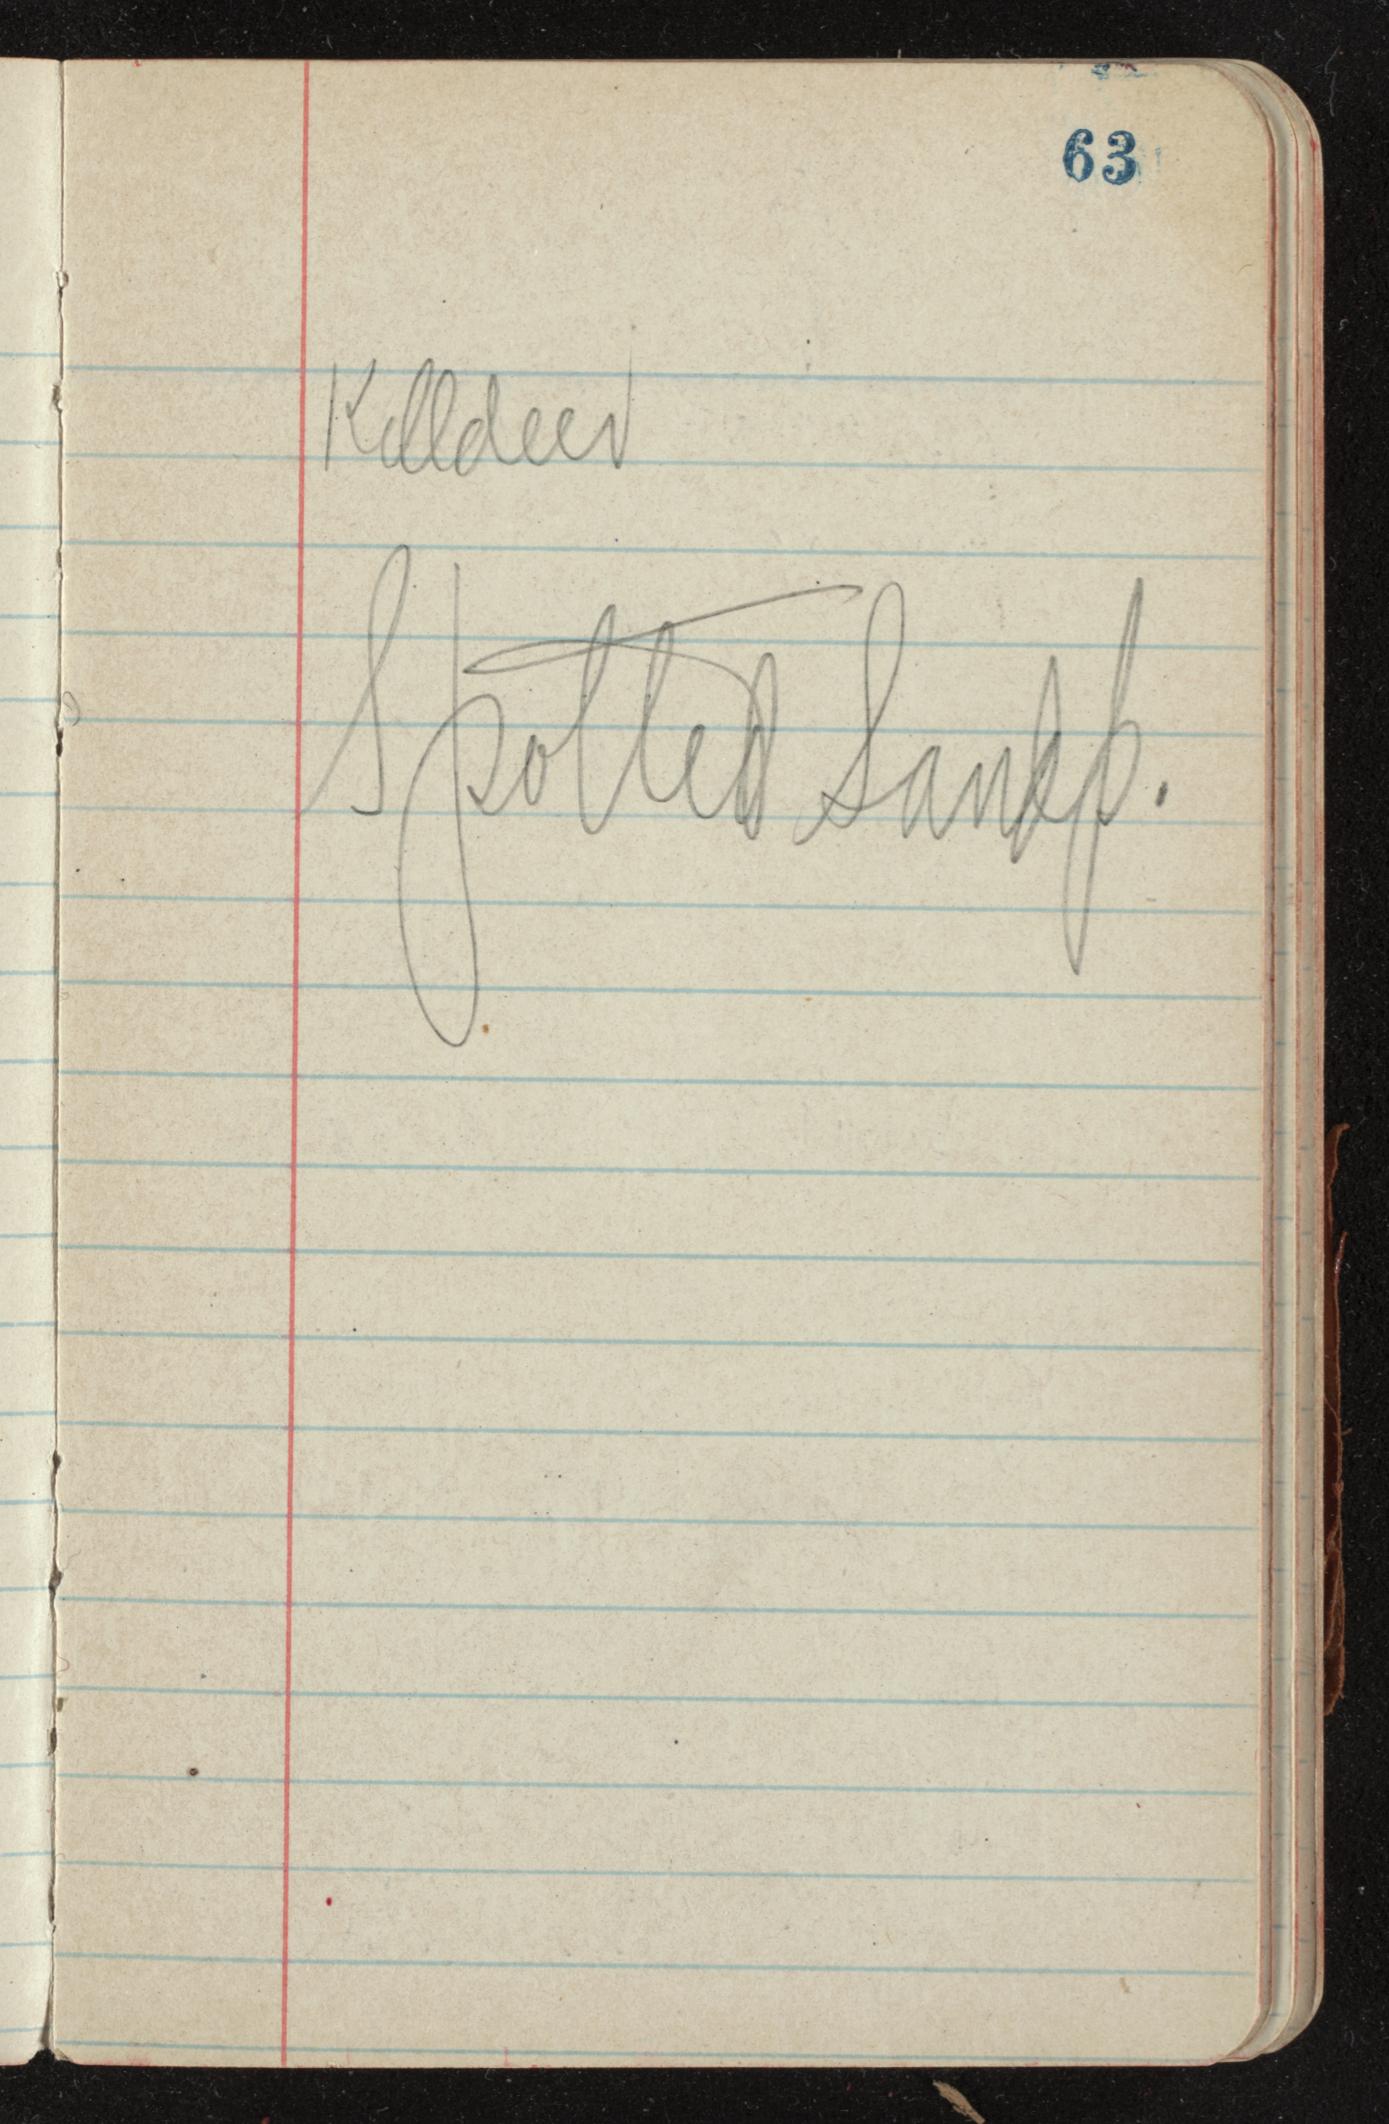 63
Killdeer
Spotted Sandp.